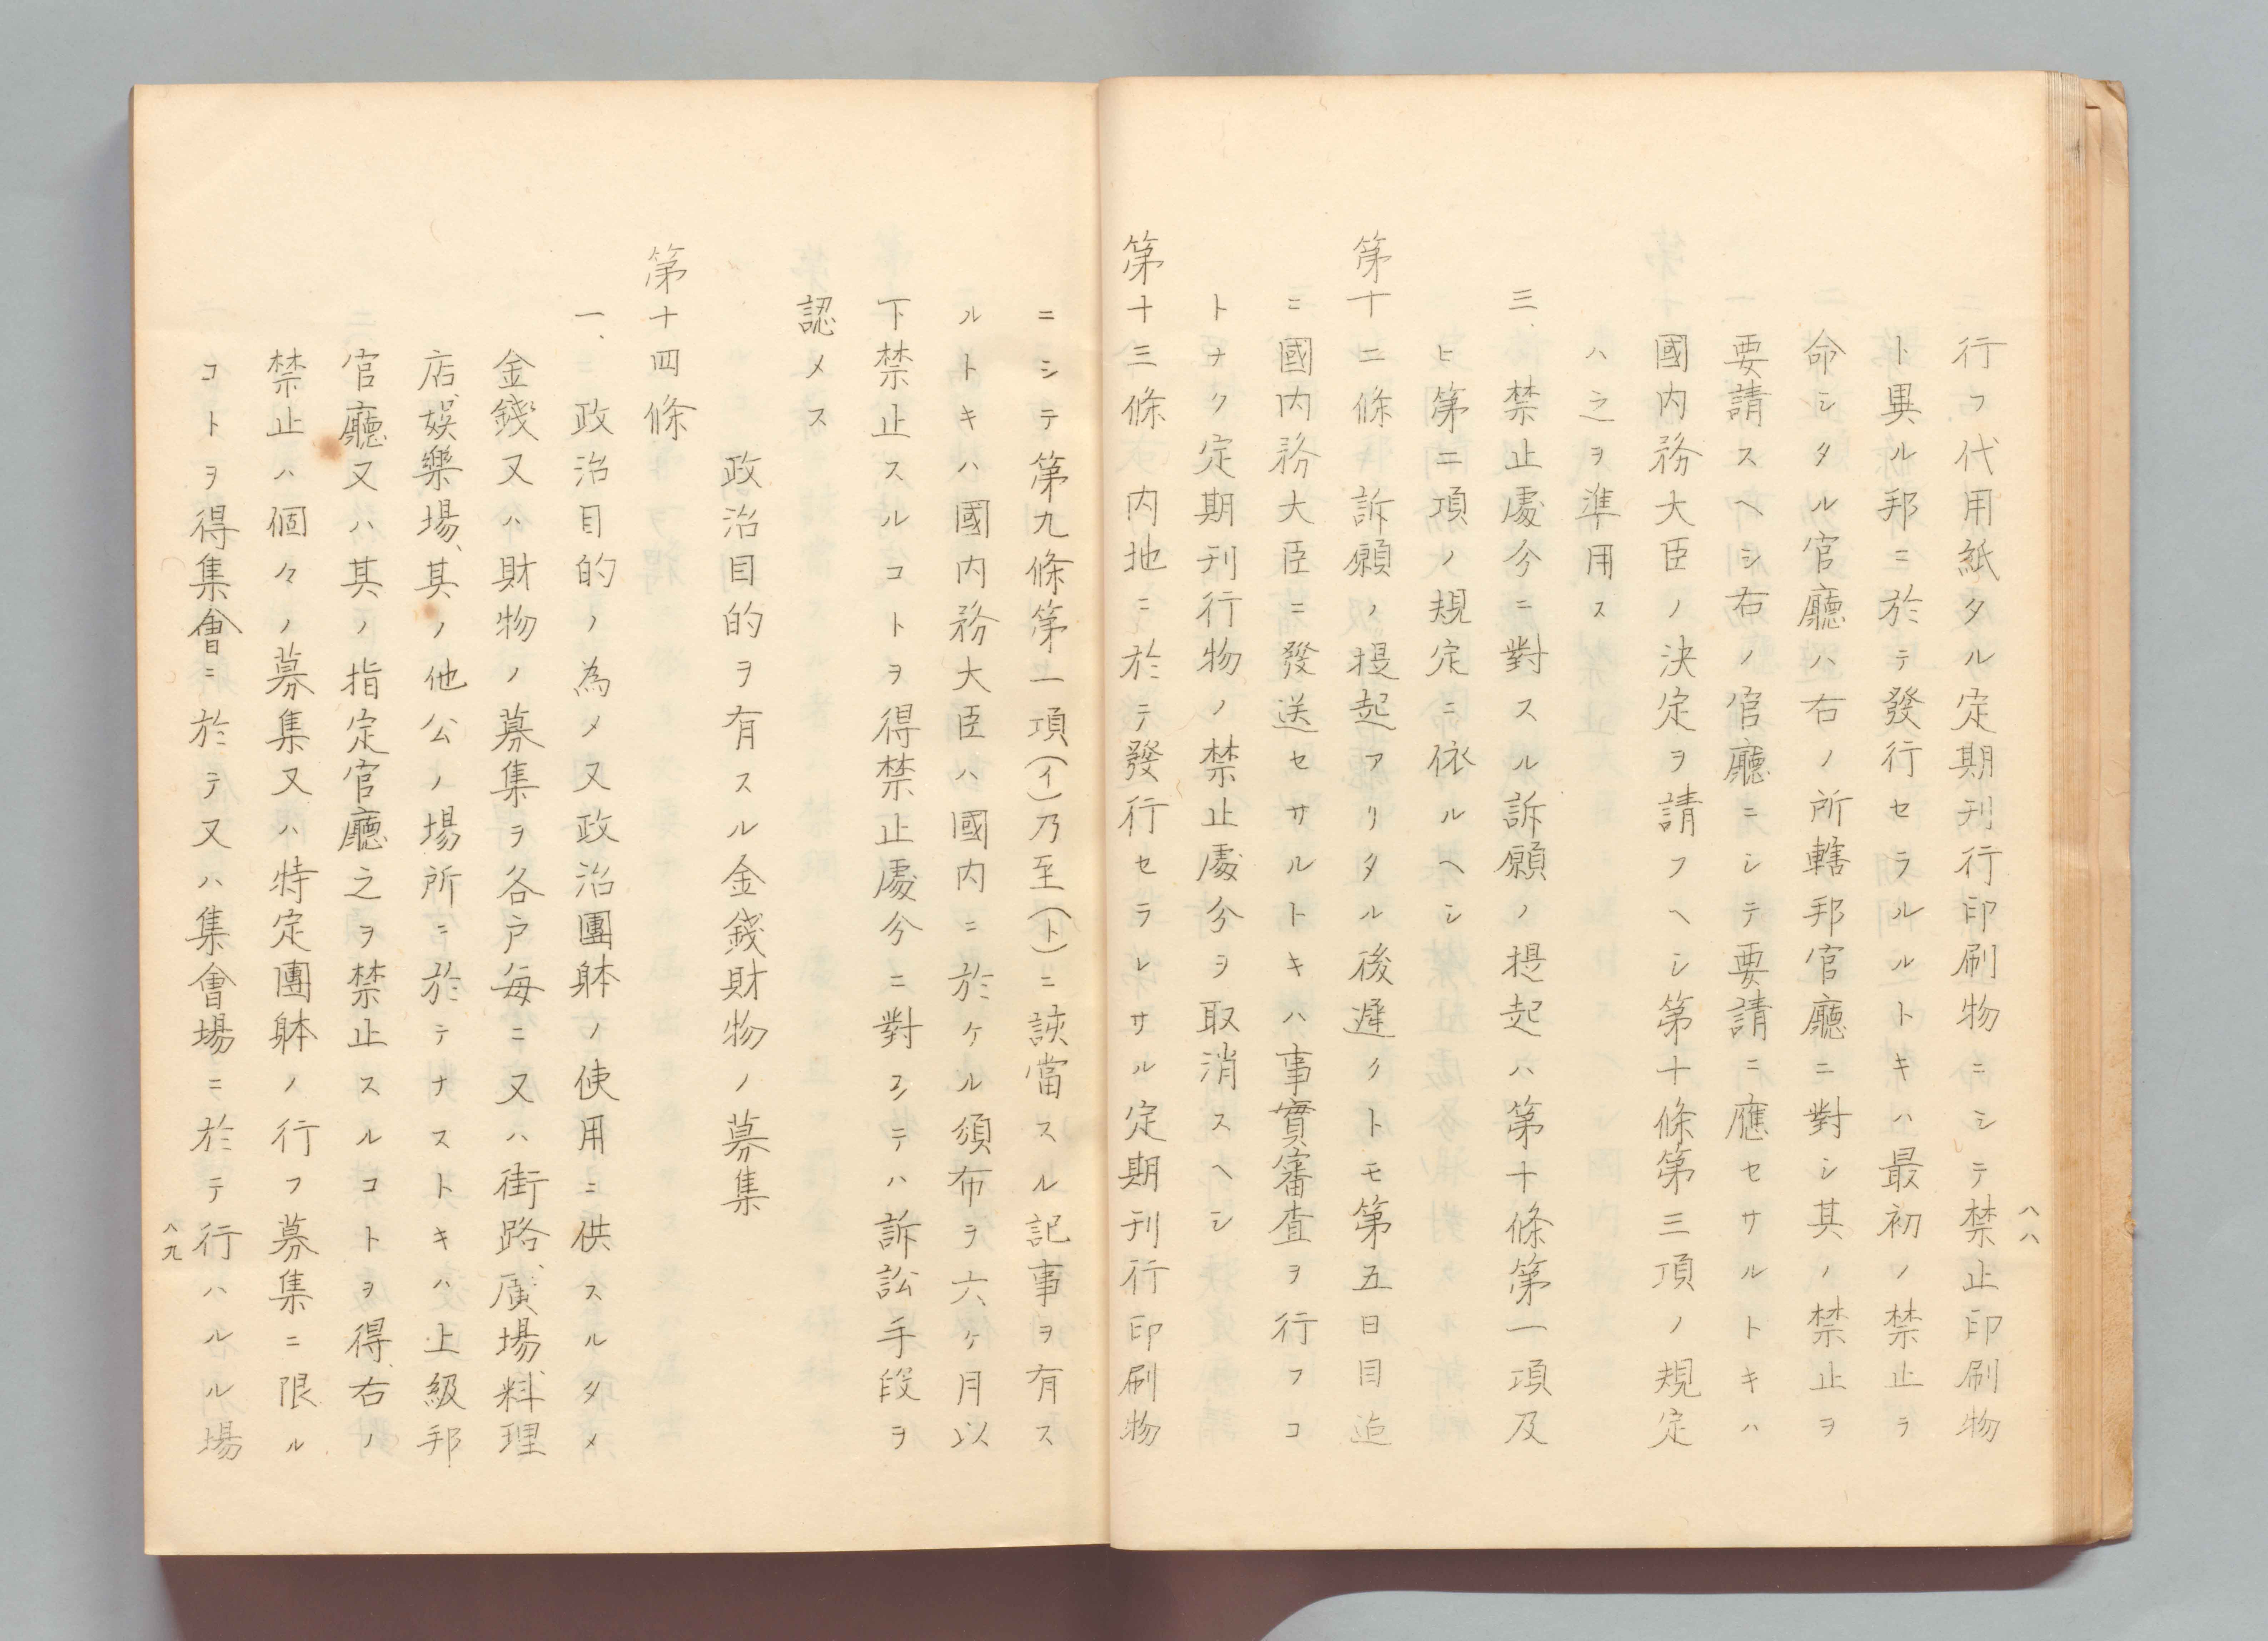 八八
行フ代用紙タル定期刊行印刷物ニシテ禁止印刷物
ト異ル邦ニ於テ發行セラルルトキハ最初ノ禁止ヲ
命シタル官廳ハ右ノ所轄邦官廳ニ對シ其ノ禁止ヲ
要請スヘシ右ノ官廳ニシテ要請ニ應セサルトキハ
國内務大臣ノ決定ヲ請フヘシ第十條第三項ノ規定
ハ之ヲ準用ス
三、禁止處分ニ對スル訴願ノ提起ハ第十條第一項及
ヒ第二項ノ規定ニ依ルヘシ
第十二條 訴願ノ提起アリタル後遲クトモ第五日目迄
ニ國内務大臣ニ發送セサルトキハ事實審査ヲ行フコ
トナク定期刊行物ノ禁止處分ヲ取消スヘシ
第十三條 内地ニ於テ發行セラレサル定期刊行印刷物
ニシテ第九條第一項(イ)乃至(ト)ニ該當スル記事ヲ有ス
ルトキハ國内務大臣ハ國内ニ於ケル頒布ヲ六ヶ月以
下禁止スルコトヲ得禁止處分ニ對シテハ訴訟手段ヲ
認メス
政治目的ヲ有スル金錢財物ノ募集
第十四條
一、政治目的ノ為メ又政治團躰ノ使用ニ供スルタメ
金錢又ハ財物ノ募集ヲ各戸毎ニ又ハ街路、廣場、料理
店、娯樂場、其ノ他公ノ場所ニ於テナストキハ上級邦
官廳又ハ其ノ指定官廳之ヲ禁止スルコトヲ得、右ノ
禁止ハ個々ノ募集又ハ特定團躰ノ行フ募集ニ限ル
コトヲ得集會ニ於テ又ハ集會場ニ於テ行ハルル場
八九